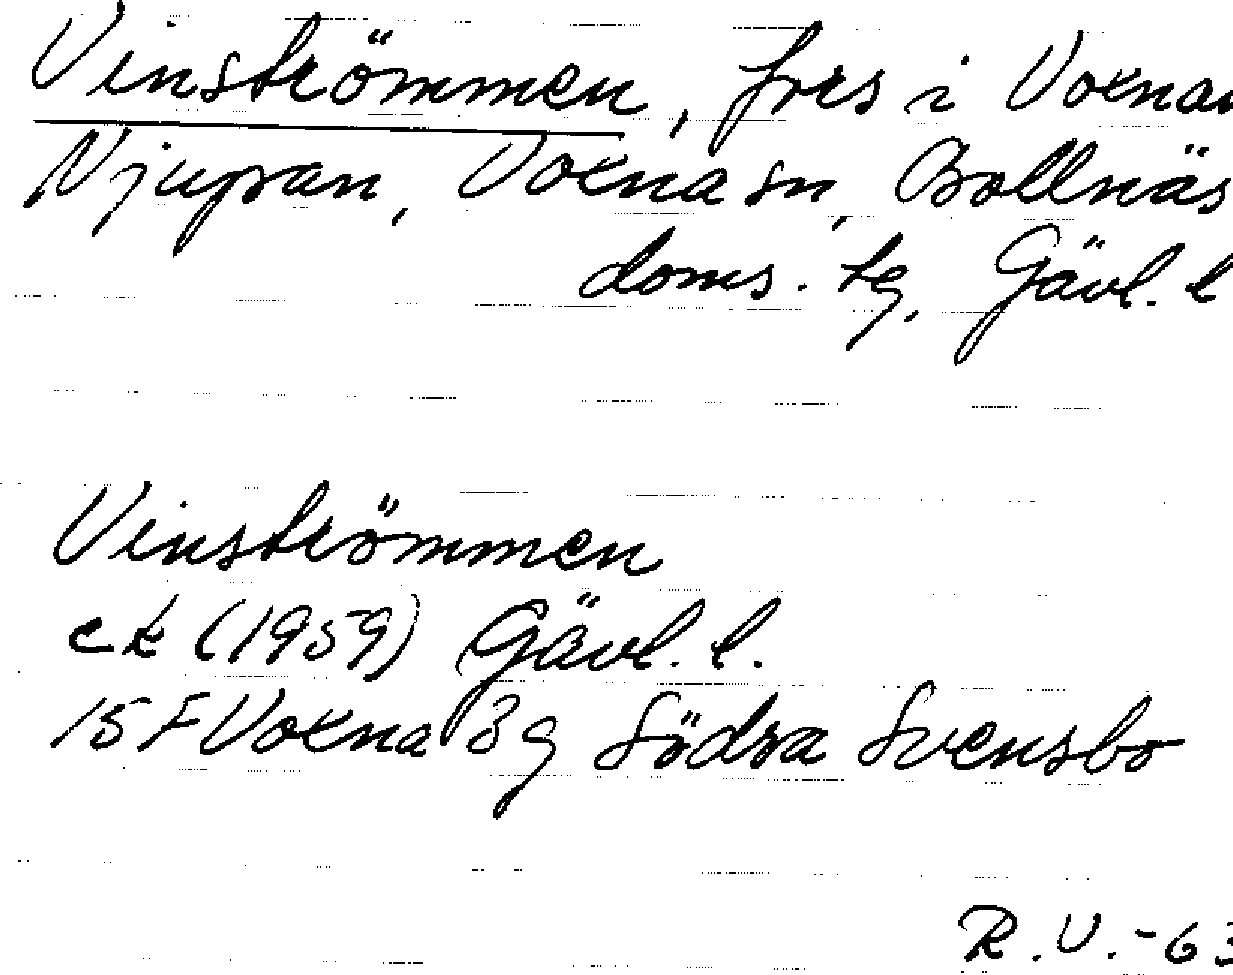 Vinströmmen, fors i Voxnan
Njupan, Voxna sn, Bollnäs
doms. tg, Gävl. l
Vinströmmen
ek (1959) Gävl. l.
15 F Voxna 3g Södra Svensbo
R.V.-63